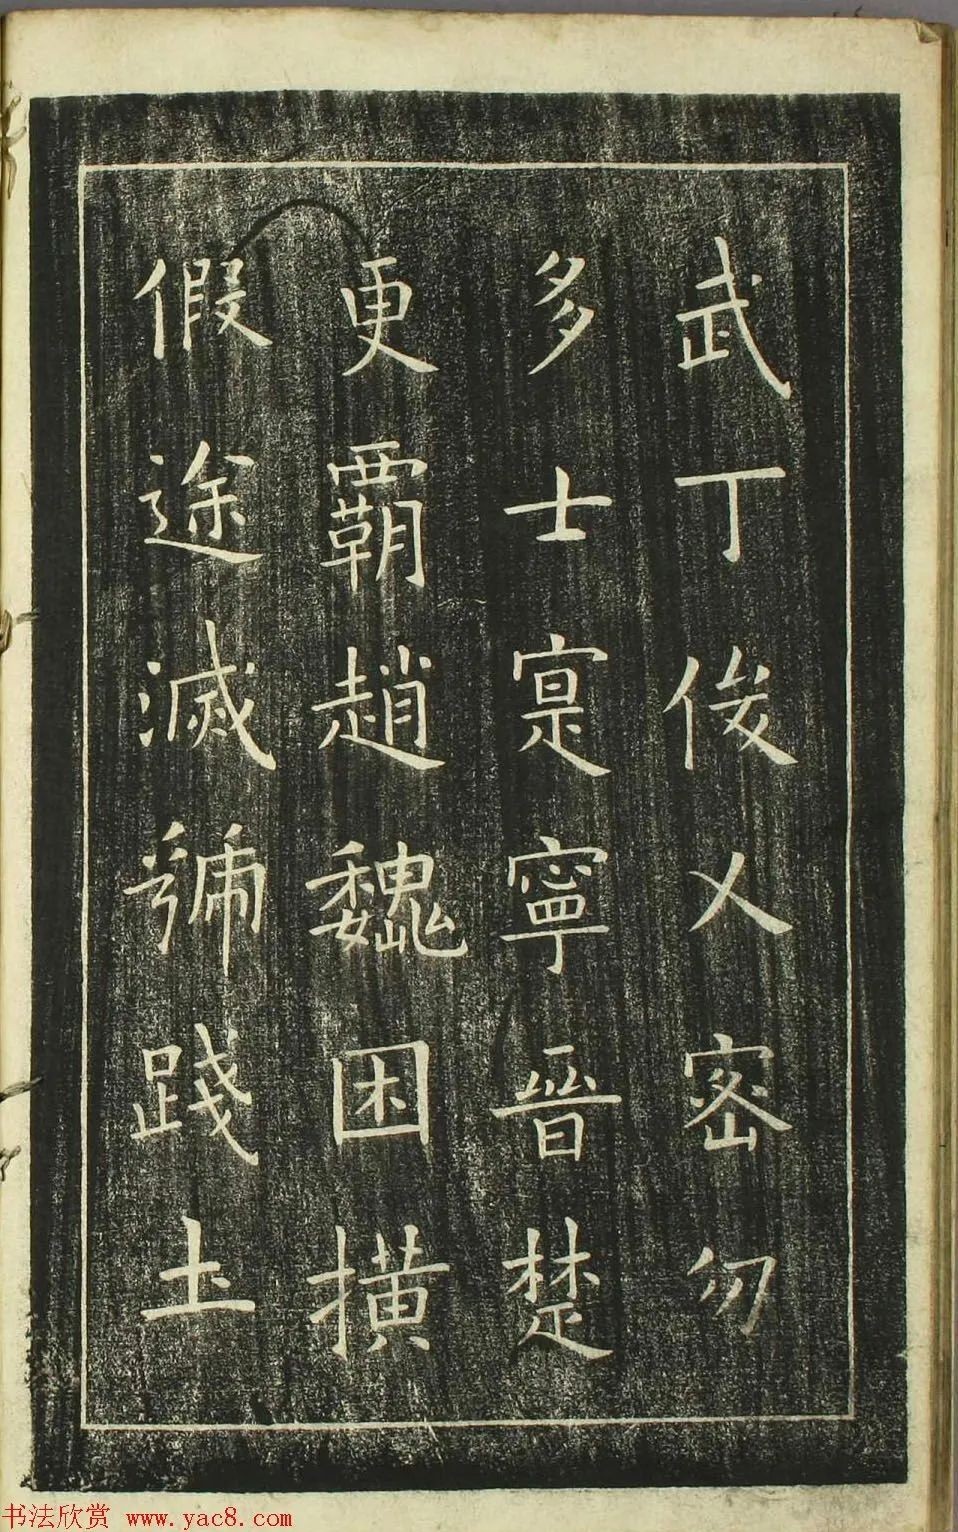 武丁俊乂密勿
多士寔寧晉楚
更霸趙魏困撗
假途滅虢踐土
书法欣赏 www.yac8.com